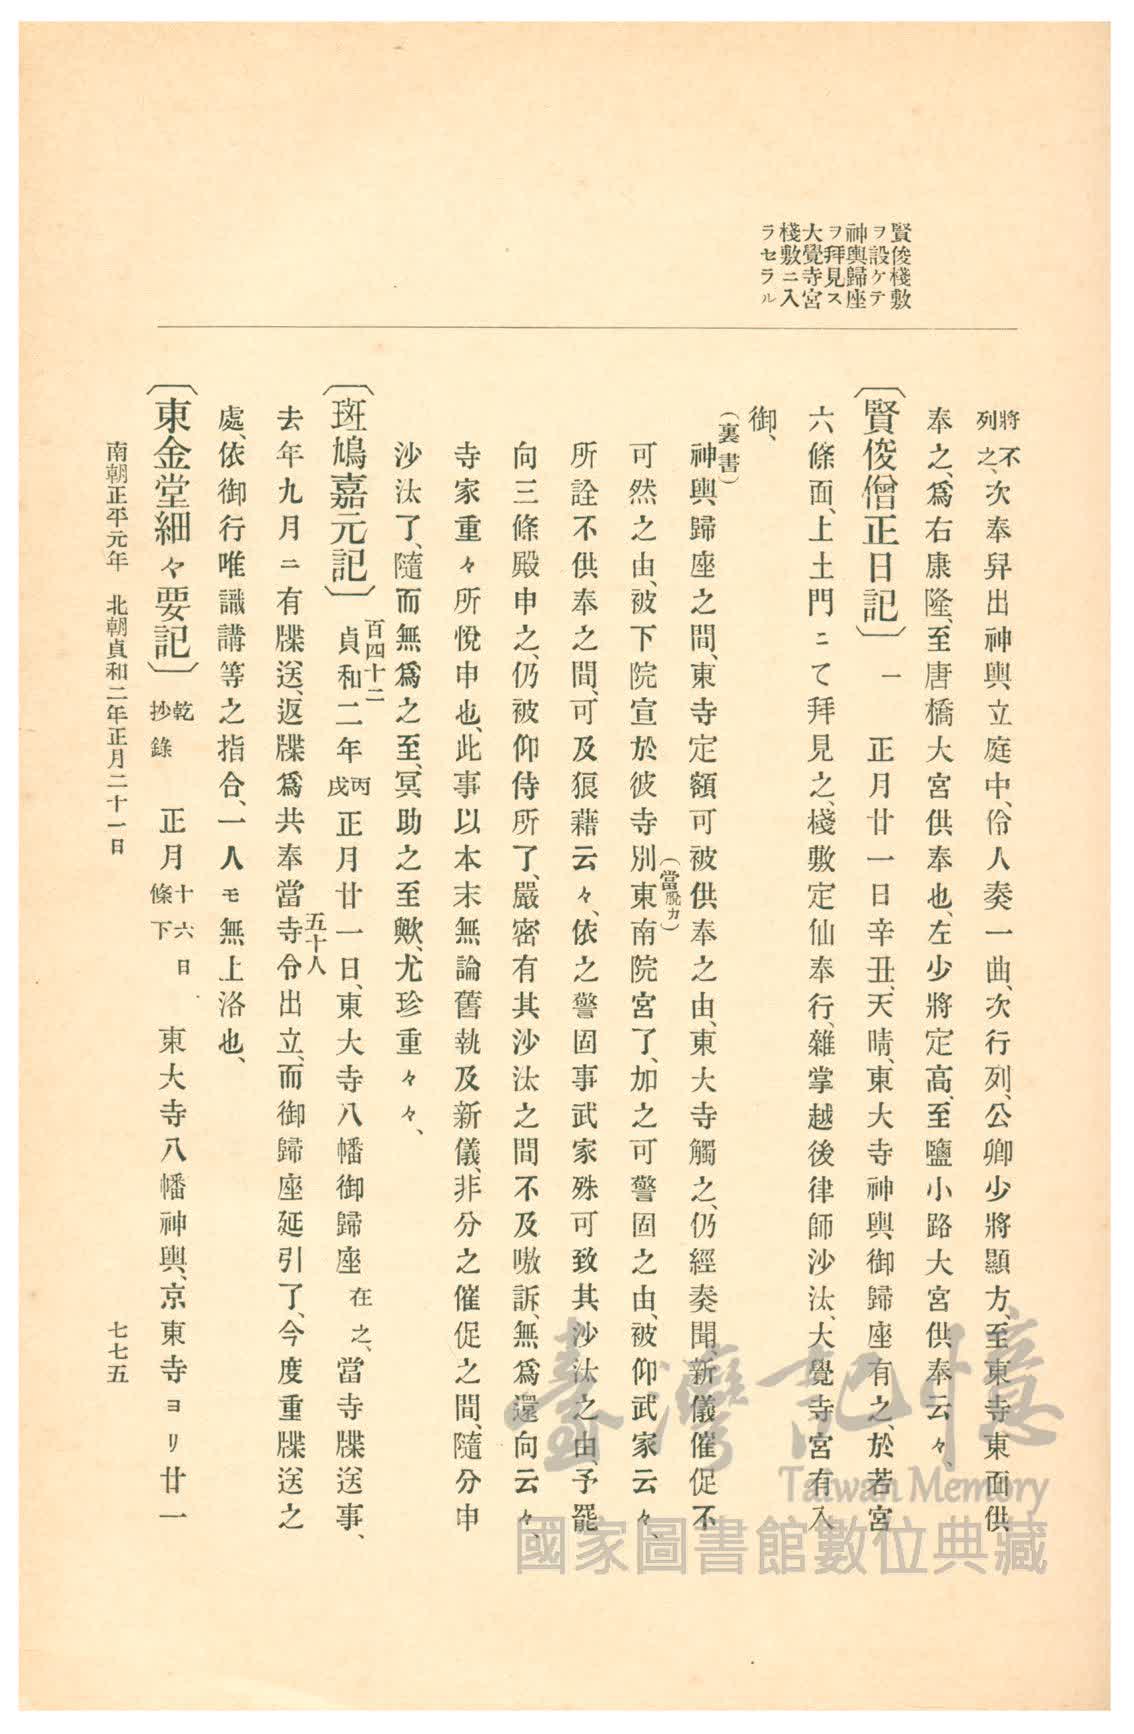 賢俊棧敷
ヲ設ケテ
神輿歸座
ヲ拜見ス
大覺寺宮
棧敷ニ入
ラセラル
將不
列之、次奉舁出神輿、立庭中、伶人奏一曲、次行列、公卿少將顯方、至東寺東面供
奉之、爲右康隆、至唐橋大宮供奉也、左少將定高、至鹽小路大宮供奉云々、
〔賢俊僧正日記〕 一 正月廿一日辛丑、天晴、東大寺神輿御歸座有之、於若宮
六條面、上土門ニて拜見之、棧敷定仙奉行、雜掌越後律師沙汰、大覺寺宮有入
御、
(裏書)
神輿歸座之間、東寺定額可被供奉之由、東大寺觸之、仍經奏聞、新儀催促不
(當脱カ)
可然之由、被下院宣於彼寺別東南院宮了、加之可警固之由、被仰武家云々、
所詮不供奉之間、可及狼藉云々、依之警固事武家殊可致其沙汰之由、予罷
向三條殿申之、仍被仰侍所了、嚴密有其沙汰之間不及嗷訴、無爲還向云々、
寺家重々所悅申也、此事以本末無論舊執及新儀、非分之催促之間、隨分申
沙汰了、隨而無爲之至、冥助之至歟、尤珍重々々、
〔斑鳩嘉元記〕 百四十二 貞和二年丙戌正月廿一日、東大寺八幡御歸座在之、當寺牒送事、
去年九月ニ有牒送、返牒爲共奉當寺五十人令出立、而御歸座延引了、今度重牒送之
處、依御行唯識講等之指合、一人モ無上洛也、
〔東金堂細々要記〕 乾抄錄 正月十六日條下 東大寺八幡神輿、京東寺ヨリ廿一
南朝正平元年 北朝貞和二年正月二十一日
七七五
臺灣記憶
Taiwan Memory
國家圖書館數位典藏